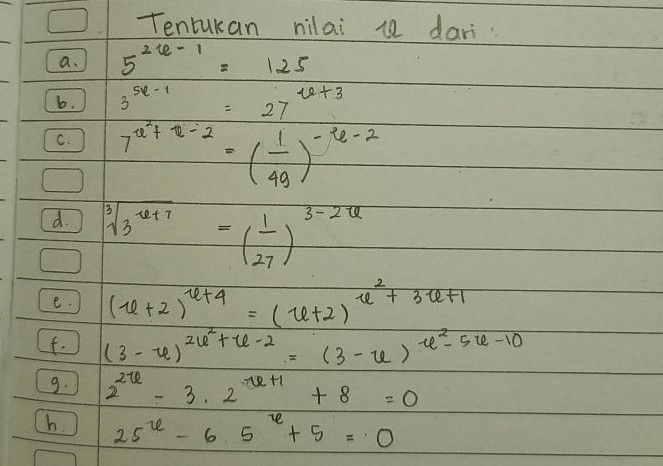 Tentukan nilai x dari :
a. 5^(2x - 1) = 125
b. 3^(5x - 1) = 27^(x + 3)
c. 7^(x² + x - 2) = (1/49)^(-x - 2)
d. ∛(3^(x + 7)) = (1/27)^(3 - 2x)
e. (x + 2)^(x + 4) = (x + 2)^(x² + 3x + 1)
f. (3 - x)^(2x² + x - 2) = (3 - x)^(x² - 5x - 10)
g. 2^(2x) - 3 . 2^(x + 1) + 8 = 0
h. 25^x - 6 . 5^x + 5 = 0